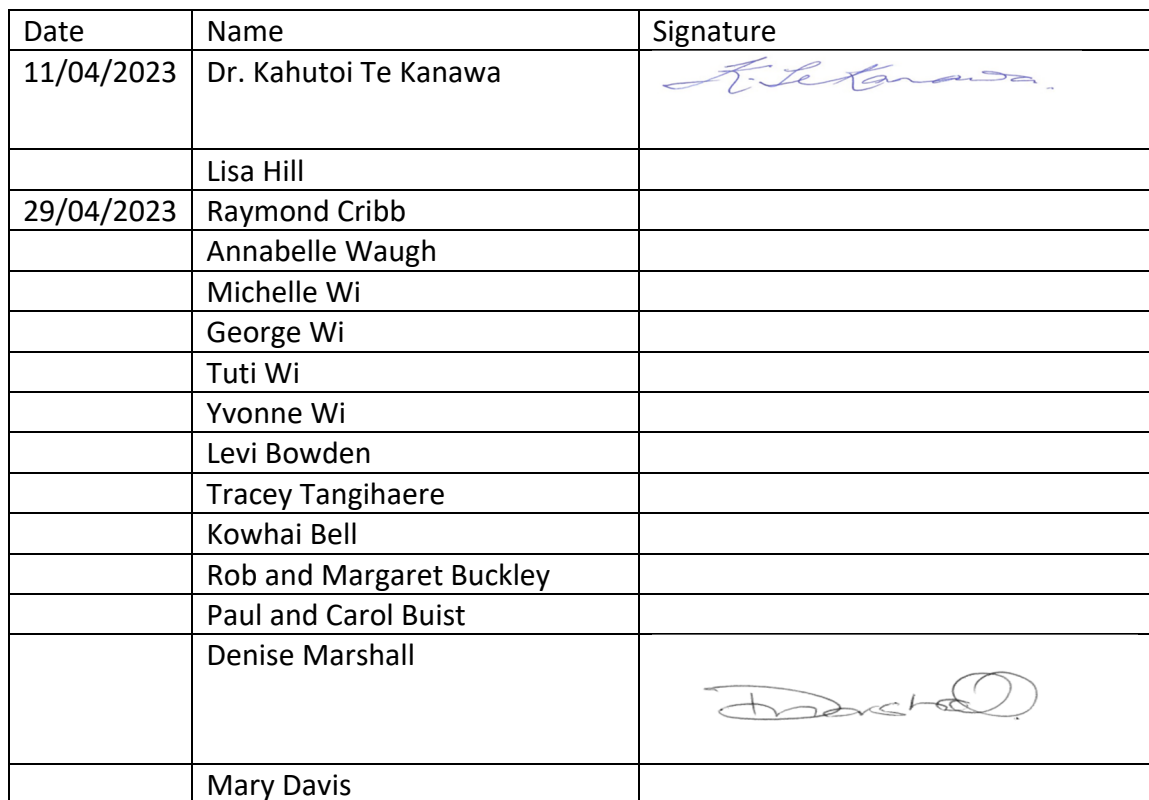 Date Name Signature
11/04/2023 Dr. Kahutoi Te Kanawa K. Te Kanawa.
Lisa Hill
29/04/2023 Raymond Cribb
Annabelle Waugh
Michelle Wi
George Wi
Tuti Wi
Yvonne Wi
Levi Bowden
Tracey Tangihaere
Kowhai Bell
Rob and Margaret Buckley
Paul and Carol Buist
Denise Marshall
Mary Davis